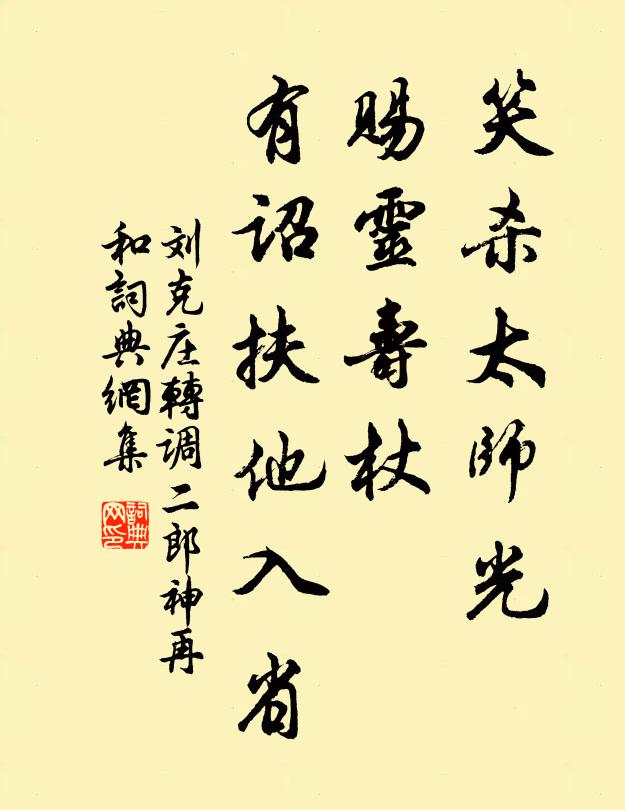 笑杀太师光
賜靈壽杖
有詔扶他入省
刘克庄轉调二郎神再
和詞典網集
詞典
网印